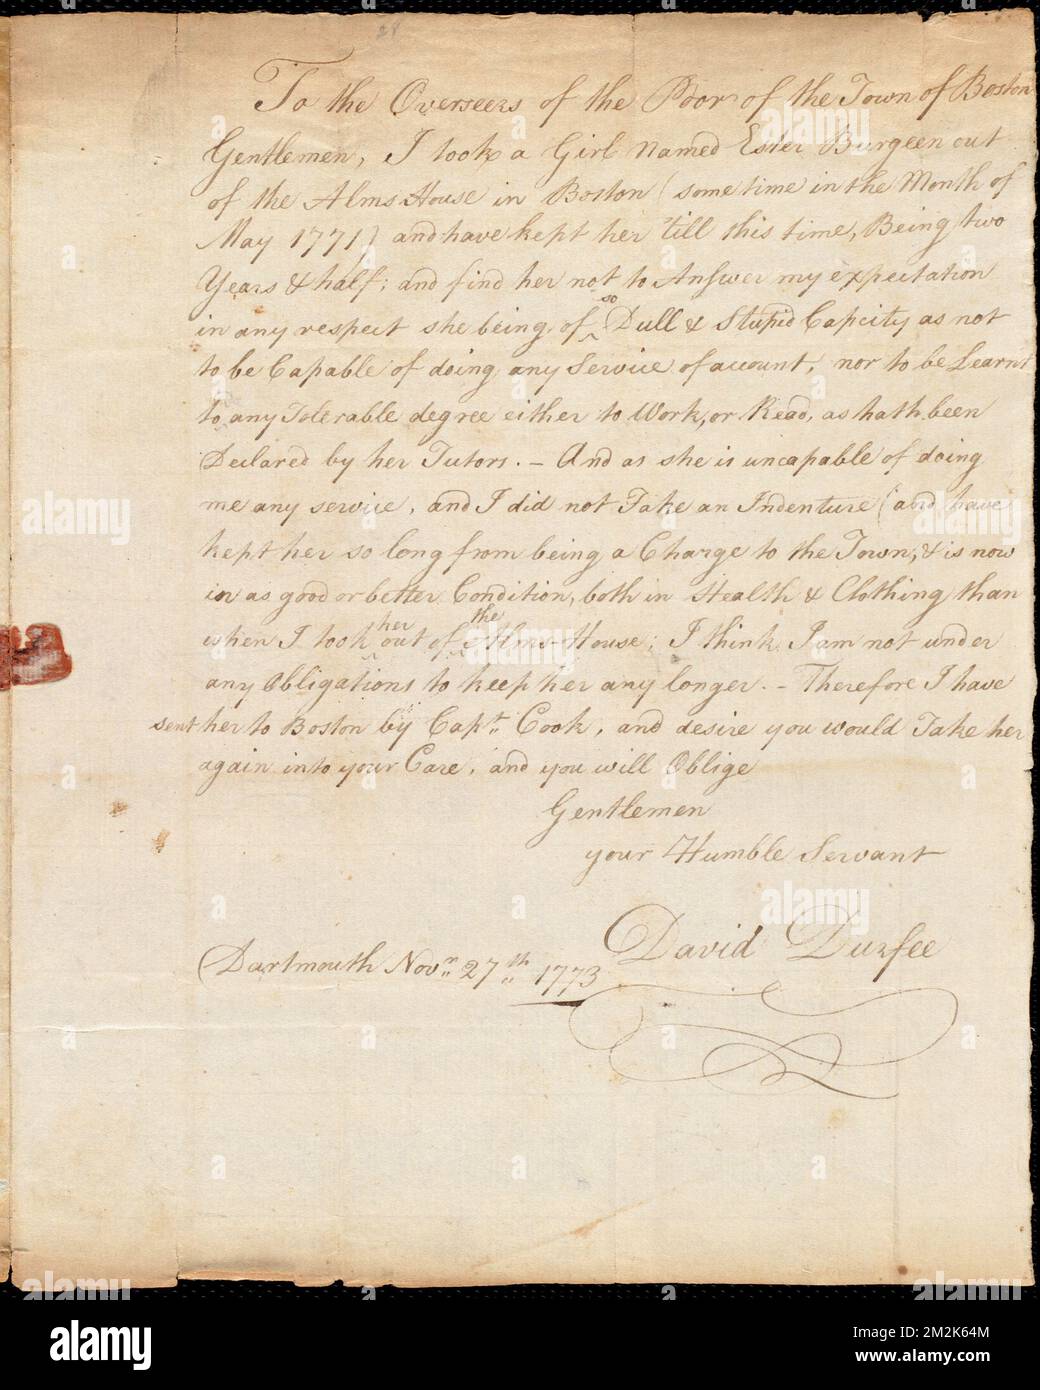 28
To the Overseers of the Poor of the Town of Boston
Gentlemen, I took a Girl Named Ester Burgeen out
of the Alms House in Boston (some time in the Month of
May 1771) and have kept her till this time, Being two
Years & half; and find her not to Answer my expectation
in any respect she being of so Dull & Stupid Capcity as not
to be Capable of doing any Service of account, nor to be Learnt
to any Tolerable degree either to Work, or Read, as hath been
Declared by her Tutors. – And as she is uncapable of doing
me any service, and I did not Take an Indenture (and have
kept her so long from being a Charge to the Town, & is now
in as good or better Condition, both in Health & Clothing than
when I took her out of the Alms-House; I think I am not under
any Obligations to keep her any longer. – Therefore I have
sent her to Boston by Capt. Cook, and desire you would Take her
again into your Care, and you will Oblige
Gentlemen
your Humble Servant
David Durfee
Dartmouth Novr. 27th 1773
alamy
Image ID: 2M2K64M
www.alamy.com